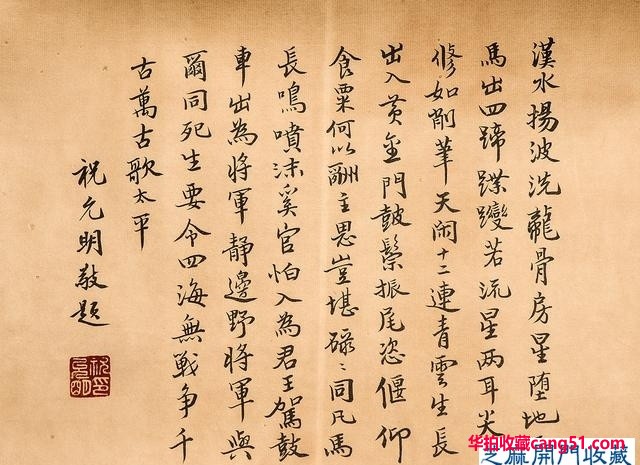 漢水揚波洗龍骨房星墮地
馬出四蹄蹀躞若流星兩耳尖
修如削筆天閑十二連青雲生長
出入黃金門鼓鬃振尾恣偃仰
食粟何以酬主恩豈堪碌〻同凡馬
長鳴噴沫奚官怕入為君王駕鼓
車出為將軍靜邊野將軍與
爾同死生要令四海無戦争千
古萬古歌太平
祝允明敬題
华拍收藏cang51.com
芝麻開門收藏